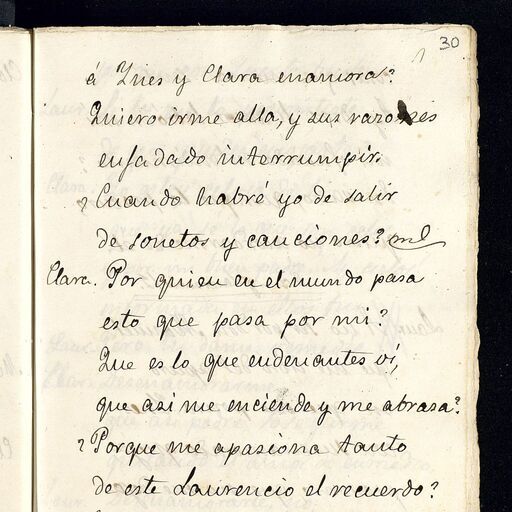 30
á Ynes y Clara enamora?
Quiero irme alla, y sus razones
enfadado interrumpir.
¿Cuando habré yo de salir
de sonetos y canciones?
Clara. Por quien en el mundo pasa
esto que pasa por mi?
Que es lo que endenantes vi,
que asi me enciende y me abrasa?
¿Porque me apasiona tanto
de este Laurencio el recuerdo?